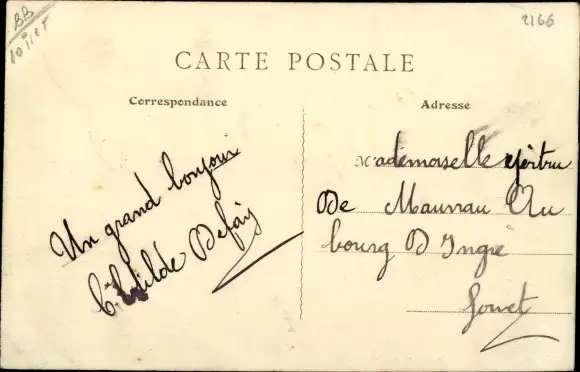 BB
2166
CARTE POSTALE
Correspondance
Adresse
Un grand bonjour
Clotilde Defay
Mademoiselle
De Mauvrau Au
bourg D Ingré
Loiret